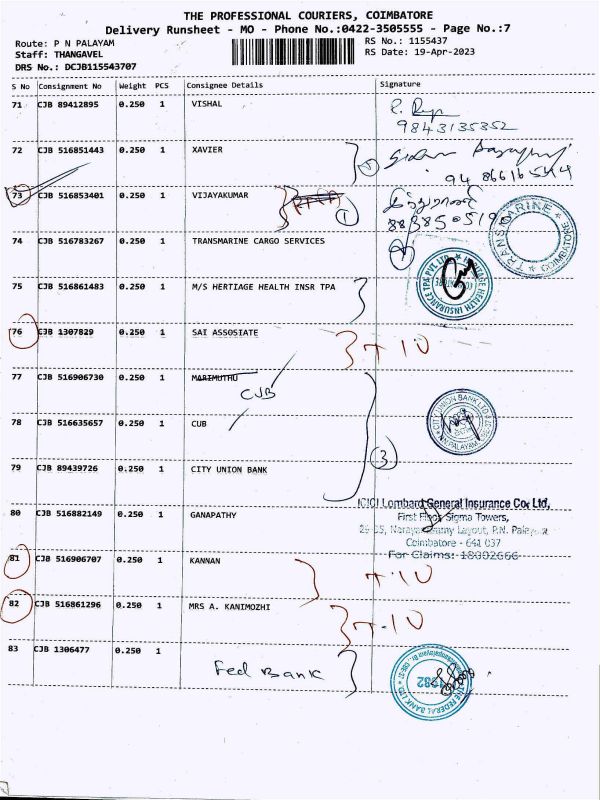 THE PROFESSIONAL COURIERS, COIMBATORE
Delivery Runsheet - MO - Phone No.:0422-3505555 - Page No.:7
Route: P N PALAYAM
RS No.: 1155437
Staff: THANGAVEL
RS Date: 19-Apr-2023
DRS No.: DCJB115543707
S No Consignment No Weight PCS Consignee Details Signature
71 CJB 89412895 0.250 1 VISHAL
9843135352
72 CJB 516851443 0.250 1 XAVIER
73 CJB 516853401 0.250 1 VIJAYAKUMAR
1
74 CJB 516783267 0.250 1 TRANSMARINE CARGO SERVICES
TRANSMARINE
75 CJB 516861483 0.250 1 M/S HERTIAGE HEALTH INSR TPA
HERITAGE HEALTH INSURANCE TPA PVT. LTD
COIMBATORE
76 CJB 1307829 0.250 1 SAI ASSOSIATE
77 CJB 516906730 0.250 1 MARIMUTHU
CJB
78 CJB 516635657 0.250 1 CUB
CITY UNION BANK LTD
3
79 CJB 89439726 0.250 1 CITY UNION BANK
80 CJB 516882149 0.250 1 GANAPATHY
ICICI Lombard General Insurance Co. Ltd,
First Floor Sigma Towers,
Layout, P.N.
Coimbatore - 641 037
For Claims: 18002666
81 CJB 516906707 0.250 1 KANNAN
82 CJB 516861296 0.250 1 MRS A. KANIMOZHI
83 CJB 1306477 0.250 1
Fed Bank
THE FEDERAL BANK LTD
1282